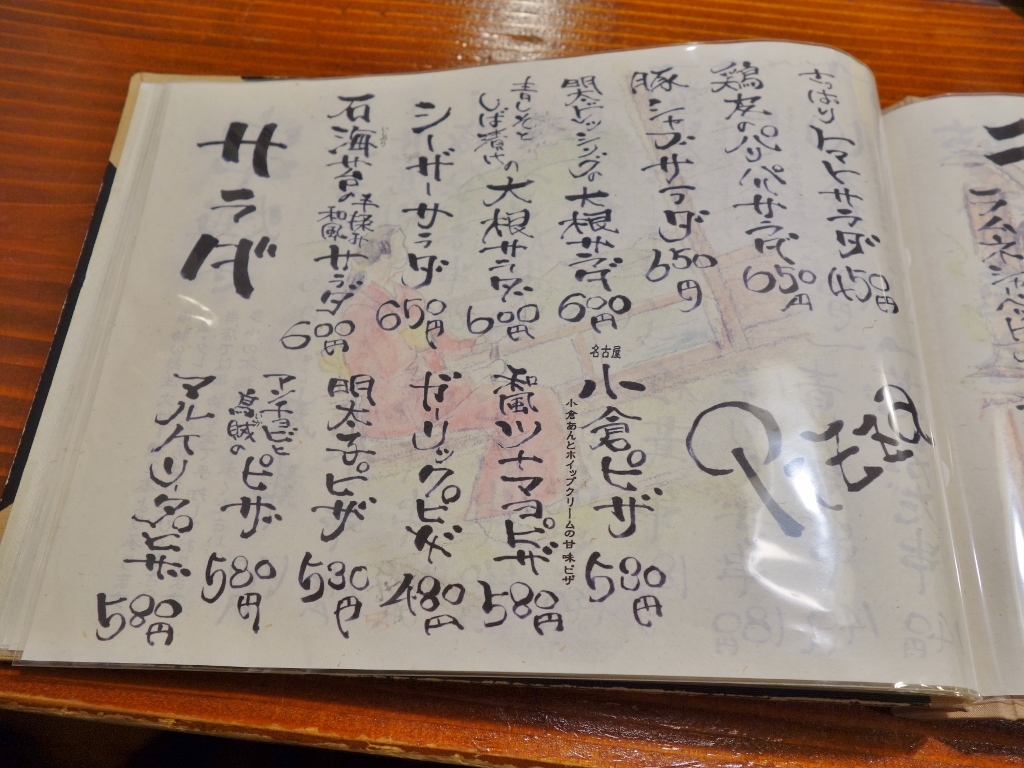 さっぱり
トマトサラダ
450円
鶏皮のパリパリサラダ
650円
豚シャブサラダ
650円
大根サラダ
600円
青しそと
しば漬けの
大根サラダ
600円
シーザーサラダ
650円
海苔の
和風
サラダ
600円
サラダ
Pizza
名古屋
小倉ピザ
530円
小倉あんとホイップクリームの甘味ピザ
和風ツナマヨピザ
580円
ガーリックピザ
480円
明太子ピザ
530円
アンチョビと
烏賊の
ピザ
580円
マルゲリータピザ
580円